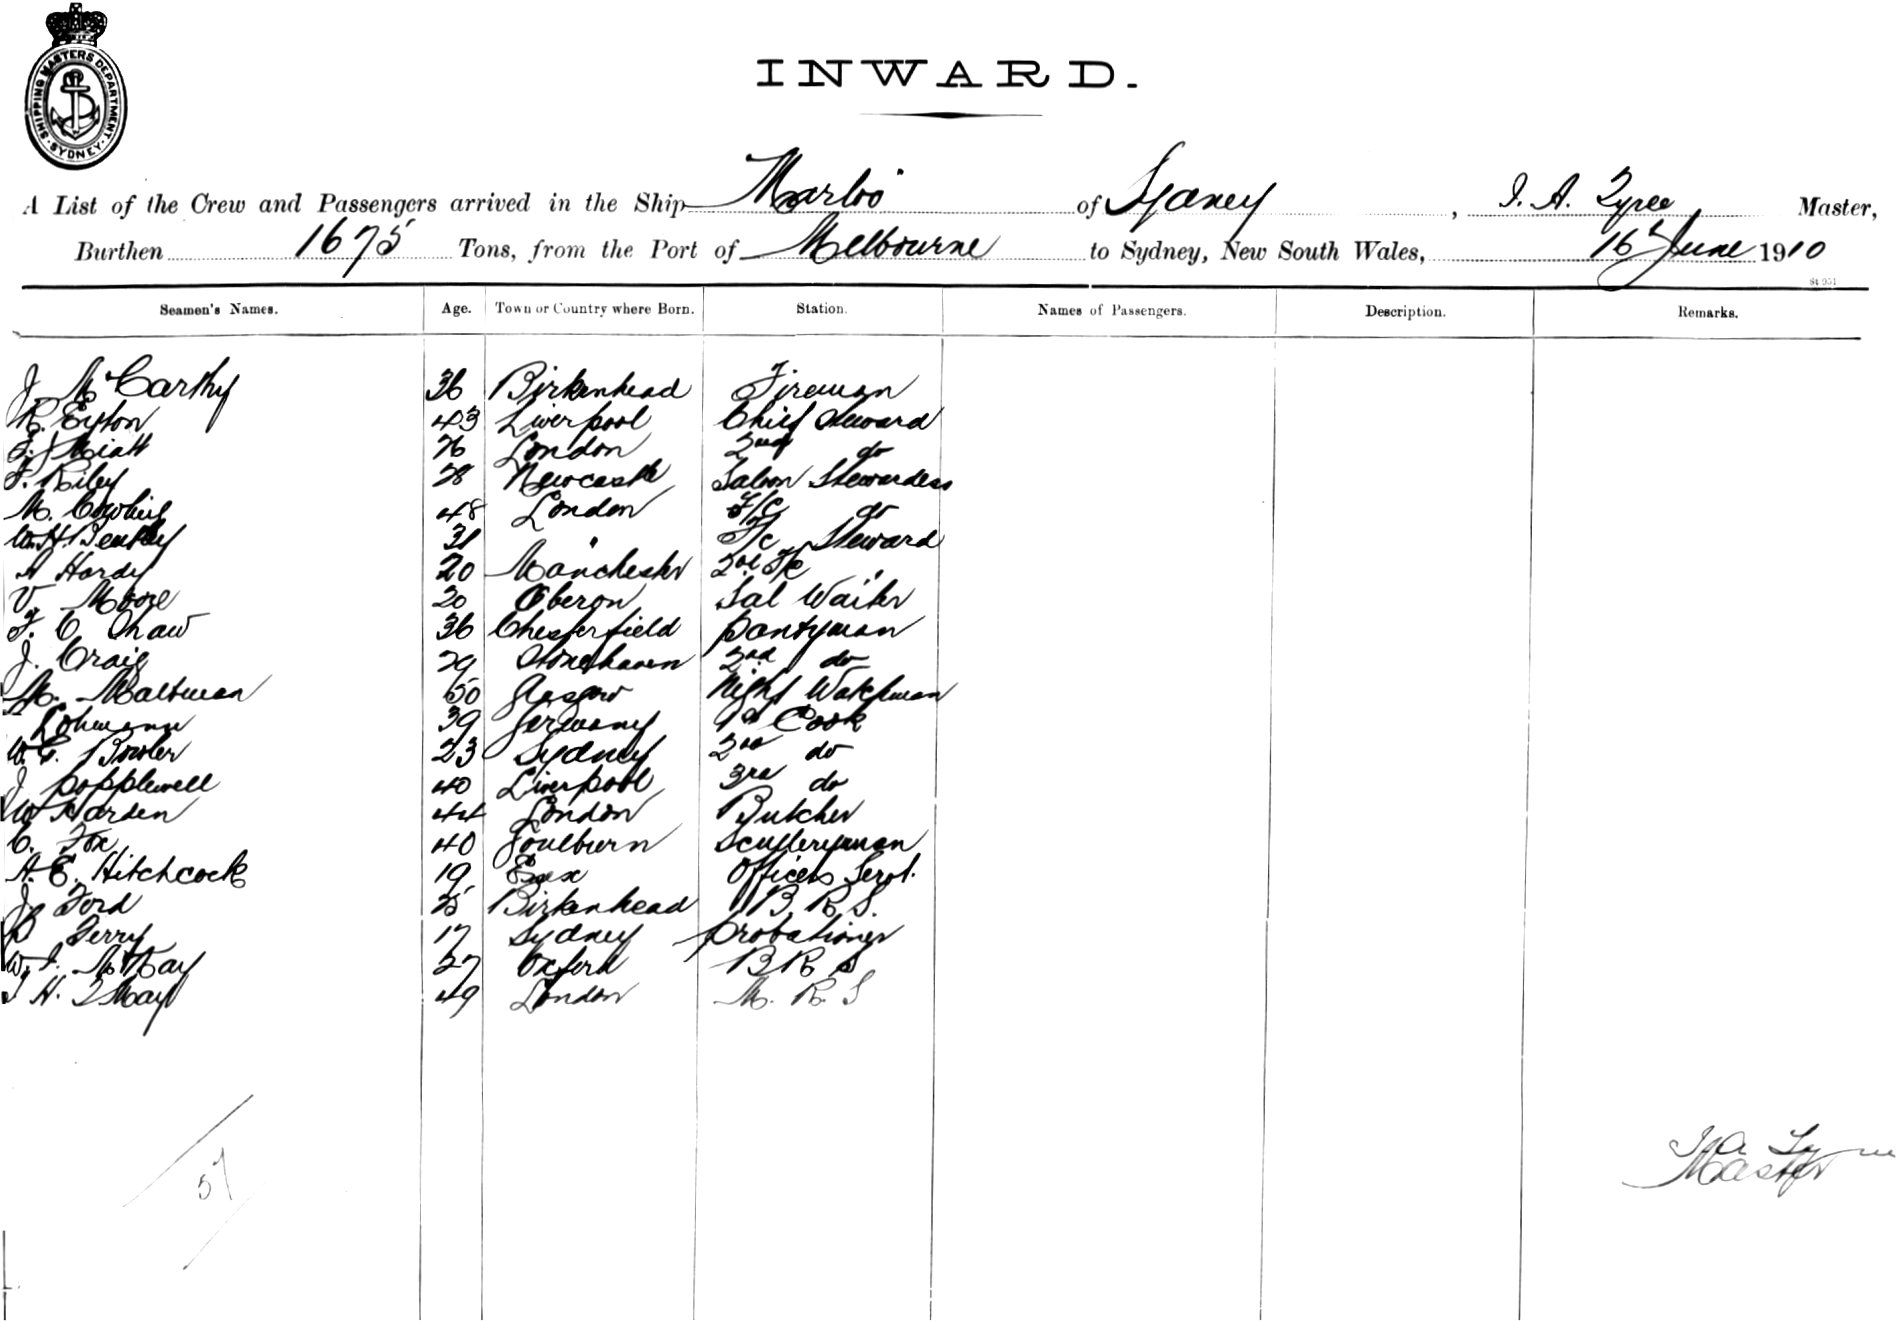 SHIPPING MASTERS DEPARTMENT SYDNEY
INWARD.
A List of the Crew and Passengers arrived in the Ship Marloo of Sydney, Master,
Burthen 1675 Tons, from the Port of Melbourne to Sydney, New South Wales, 16th June 1910
St 951
Seamen's Names. Age. Town or Country where Born. Station. Names of Passengers. Description. Remarks.
J McCarthy 36 Birkenhead Fireman
R. Eyton 43 Liverpool Chief Steward
London 2nd do
Riley 28 Newcastle Saloon Stewardess
M. 48 London F/C do
W.H. Bentley 31 " Steward
Hardy 20 Manchester 2nd "
V. Moore 20 Oberon Sal Waiter
F. C Shaw 36 Chesterfield Pantryman
J. Craig 29 Stonehaven 2nd do
M. Maltman 50 Glasgow Night Watchman
Lohmann 39 Germany 1st Cook
W. C. Bowler 23 Sydney 2nd do
J Popplewell 40 Liverpool 3rd do
W Harden 44 London Butcher
C. Fox 40 Goulburn Sculleryman
A. E. Hitchcock 19 Essex Officers Servt.
J Ford 25 Birkenhead B. R. S.
Terry 17 Sydney Probationer
W. McKay 27 Oxford B R S
H. 49 London M. R. S
57
Master